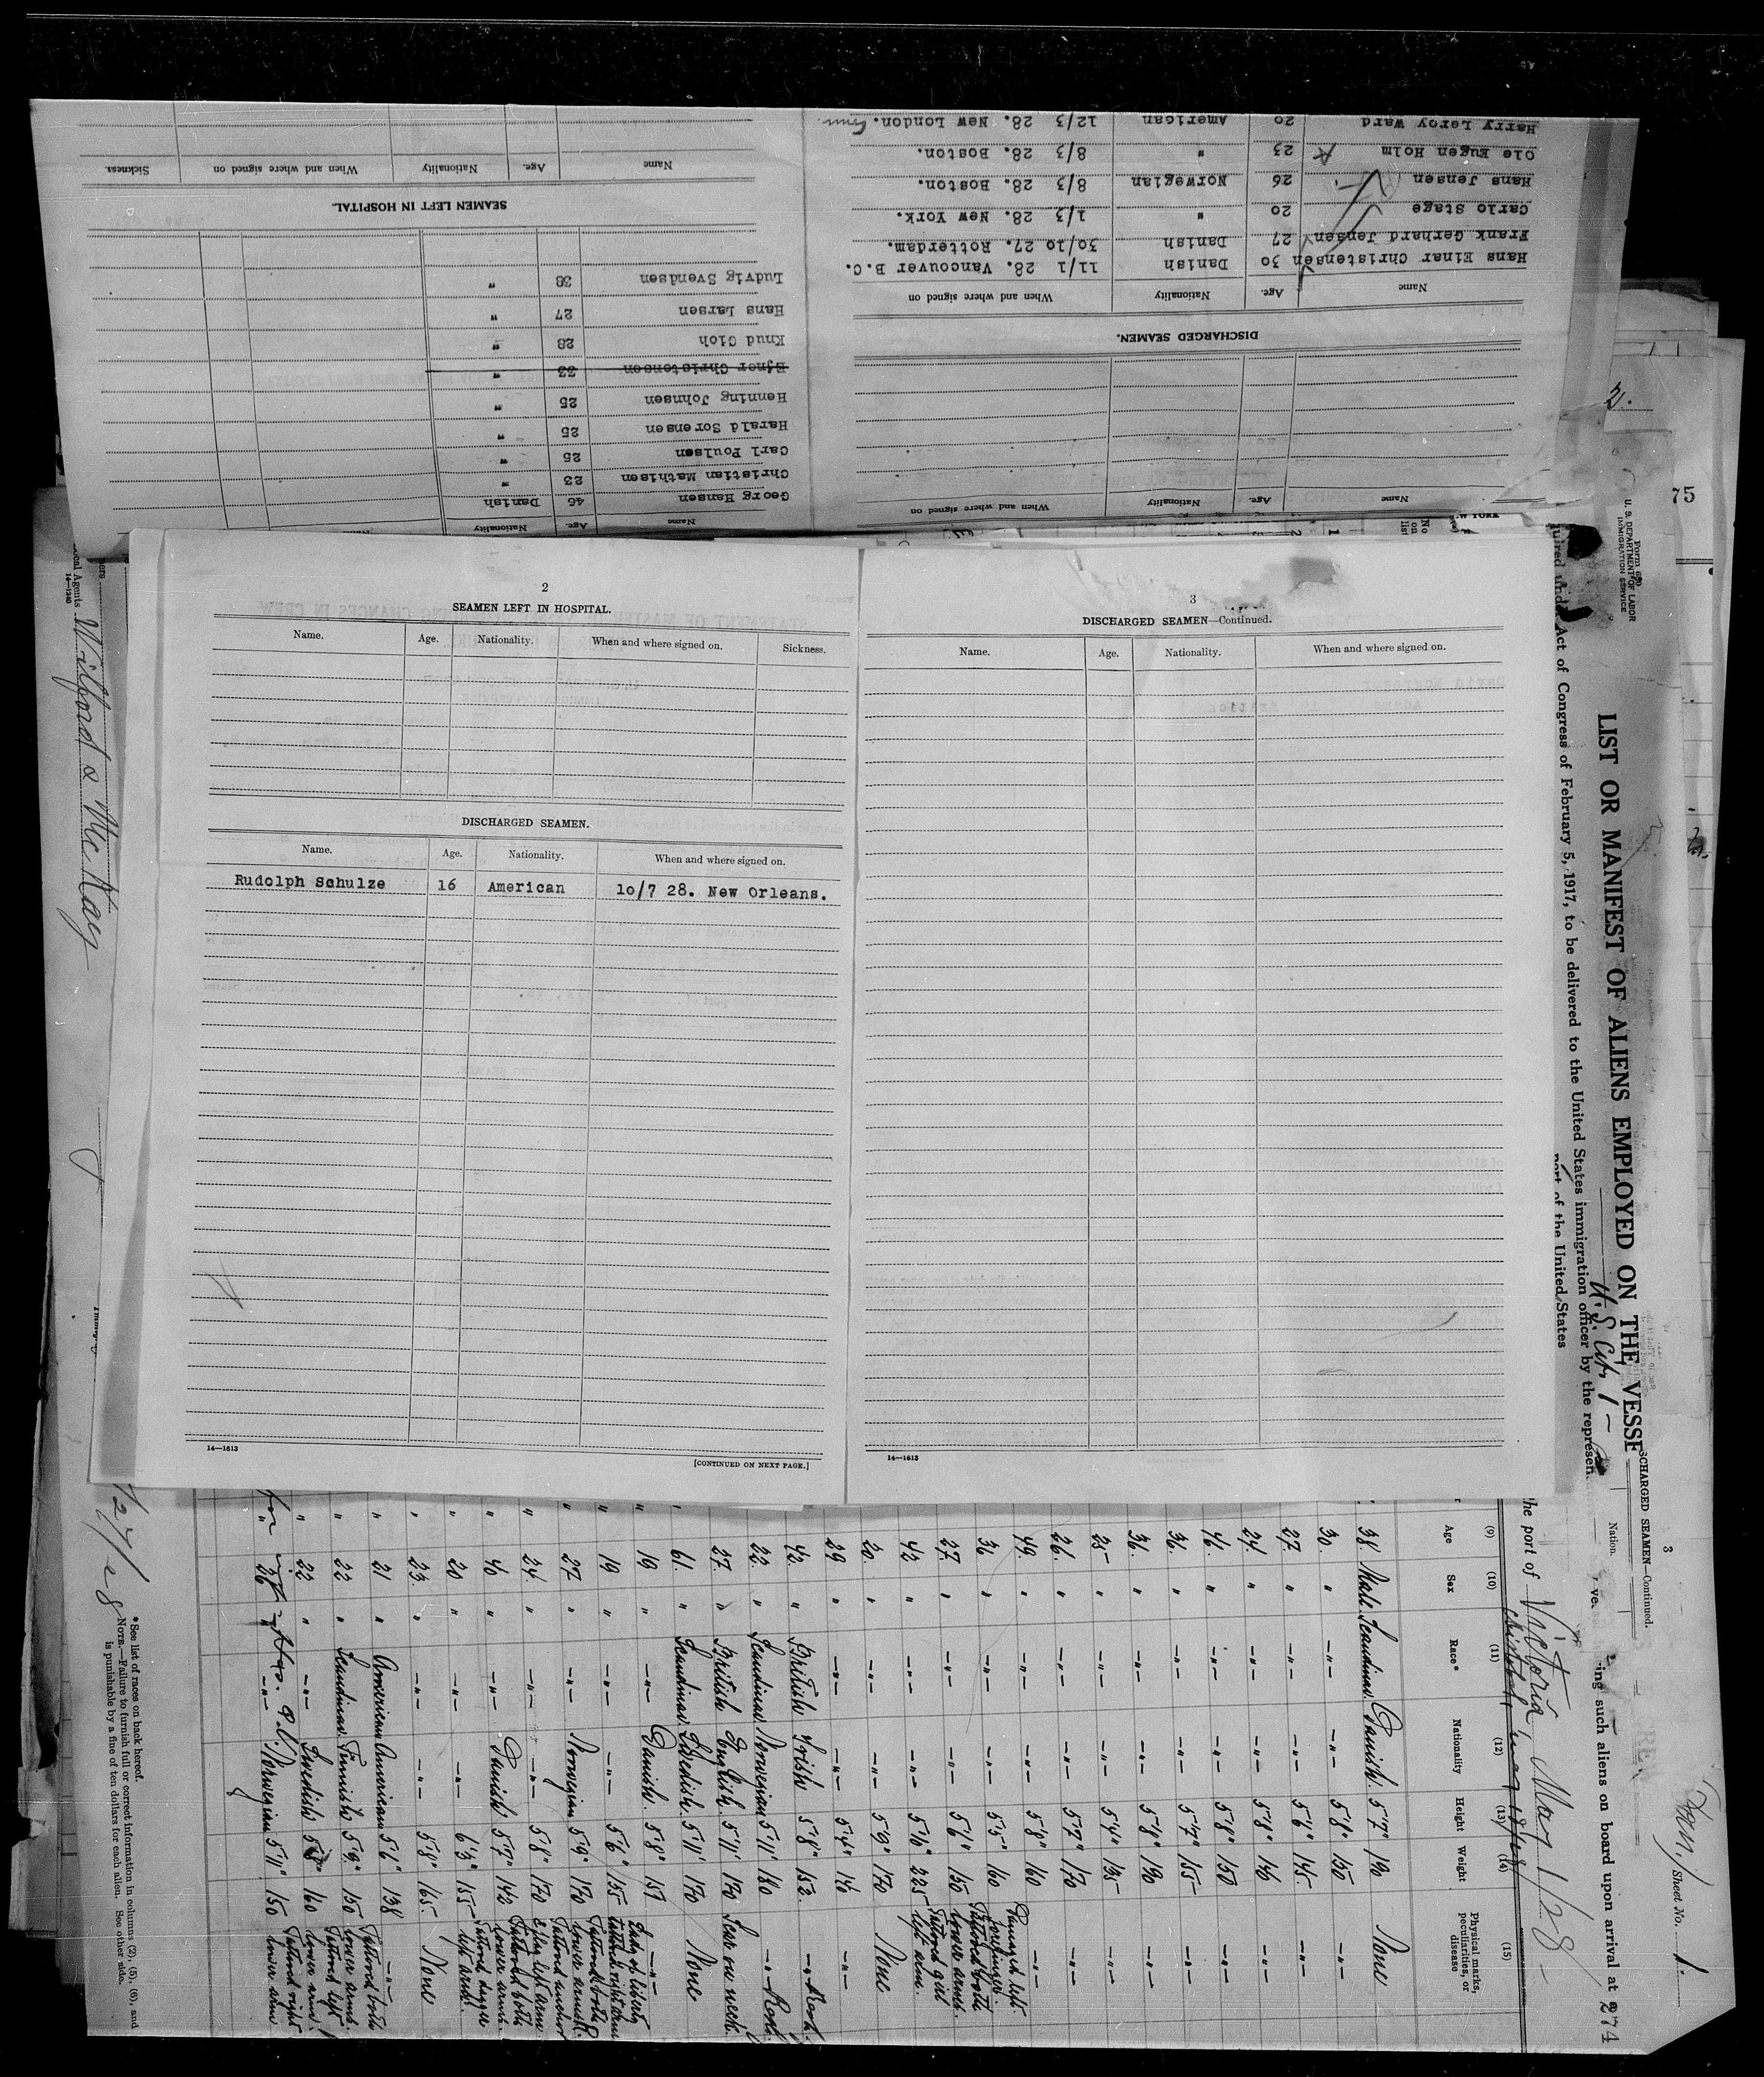 Harry Leroy Ward 20 American 12/3 28. New London. Conn.
Ole Eugen Holm 23 " 8/3 28. Boston.
Hans Jensen 26 Norwegian 8/3 28. Boston.
Carlo Stage 20 " 1/3 28. New York.
Frank Gerhard Jensen 27 Danish 30/10 27. Rotterdam.
Hans Einar Christensen 30 Danish 11/1 28. Vancouver B.C.
Name Age. Nationality When and where signed on
DISCHARGED SEAMEN.
Name Age. Nationality When and where signed on
Name Age. Nationality When and where signed on Sickness.
SEAMEN LEFT IN HOSPITAL.
Ludvig Svendsen 38 "
Hans Larsen 27 "
Knud Cloh 28 "
Ejner Christensen 33 "
Henning Johnsen 25 "
Harald Sorensen 25 "
Carl Poulsen 25 "
Christian Mathisen 23 "
Georg Hansen 46 Danish
Name Age. Nationality
2
SEAMEN LEFT IN HOSPITAL.
Name. Age. Nationality. When and where signed on. Sickness.
DISCHARGED SEAMEN.
Name. Age. Nationality. When and where signed on.
Rudolph Schulze 16 American 10/7 28. New Orleans.
14—1613
[CONTINUED ON NEXT PAGE.]
3
DISCHARGED SEAMEN—Continued.
Name. Age. Nationality. When and where signed on.
14—1613
2.
75
Form 680
U. S. DEPARTMENT OF LABOR
IMMIGRATION SERVICE
LIST OR MANIFEST OF ALIENS EMPLOYED ON THE VESSE
Act of Congress of February 5, 1917, to be delivered to the United States immigration officer by the represen
port of the United States
3
SCHARGED SEAMEN—Continued.
Nation.
Sheet No. 1.
ing such aliens on board upon arrival at a
274
the port of Victoria, May 1/28
(9) (10) (11) (12) (13) (14) (15)
Age Sex Race* Nationality Height Weight Physical marks, peculiarities, or disease
38. Male Scandinav. Danish. 5'7" 190 None
30. " —"— —"— 5'8" 150 —"—
27 " —"— —"— 5'6" 145. —"—
24. " —"— —"— 5'8" 140 —"—
46. " —"— —"— 5'8" 150 —"—
36. " —"— —"— 5'7" 155 —"—
36. " —"— —"— 5'8" 190 —"—
25 " —"— —"— 5'4" 135 —"—
26. " —"— —"— 5'7" 170 —"—
49. " —"— —"— 5'8" 160 —"—
36 " —"— —"— 5'5" 160 Damaged left forefinger.
27. " —"— —"— 5'6" 150 Tattooed both lower arms.
42 " —"— —"— 5'6" 225 Tattooed girl left arm.
20. " —"— —"— 5'9" 170 None
29 " —"— —"— 5'4" 140 —"—
42. " British Irish 5'8" 152.
22. " Scandinav. Norwegian 5'11" 180
27. " British English. 5'11" 170 Scar on neck.
61. " Scandinav. Swedish. 5'11" 170 None
19 " —"— Danish. 5'8" 157 —"—
19 " —"— —"— 5'6" 155
27 " —"— Norwegian 5'9" 170
24. " —"— —"— 5'8" 170
40 " —"— Danish 5'7" 142
20 " —"— —"— 6'3" 155
23. " —"— —"— 5'8" 165. None
21 " American American 5'6" 138 —"—
22 " Scandinav. Finnish 5'9" 150 Tattooed both lower arms.
22 " —"— Swedish 160 Tattooed left lower arm.
—"— Norwegian 5'11" 150 Tattooed right lower arm
*See list of races on back hereof.
NOTE.—Failure to furnish full or correct information in columns (2), (5), (6), and
is punishable by a fine of ten dollars for each alien. See other side.
Local Agents
14—1240
Wilford & McKay